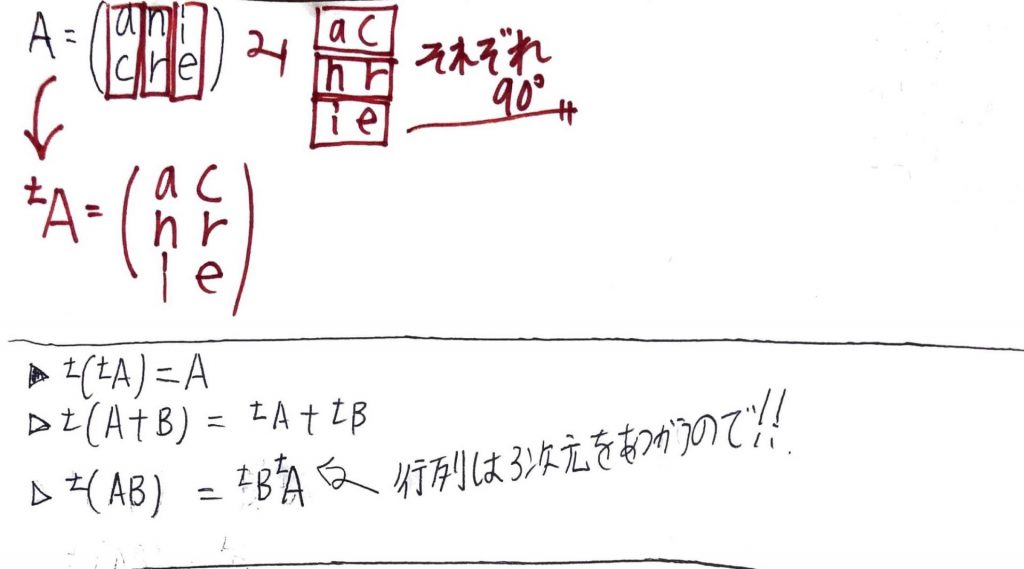 A = ( a n i
c r e ) a c
n r
i e
それぞれ
90°
tA = ( a c
n r
i e )
▶ t(tA) = A
▷ t(A+B) = tA + tB
▷ t(AB) = tBtA 行列は3次元をあつかうので!!